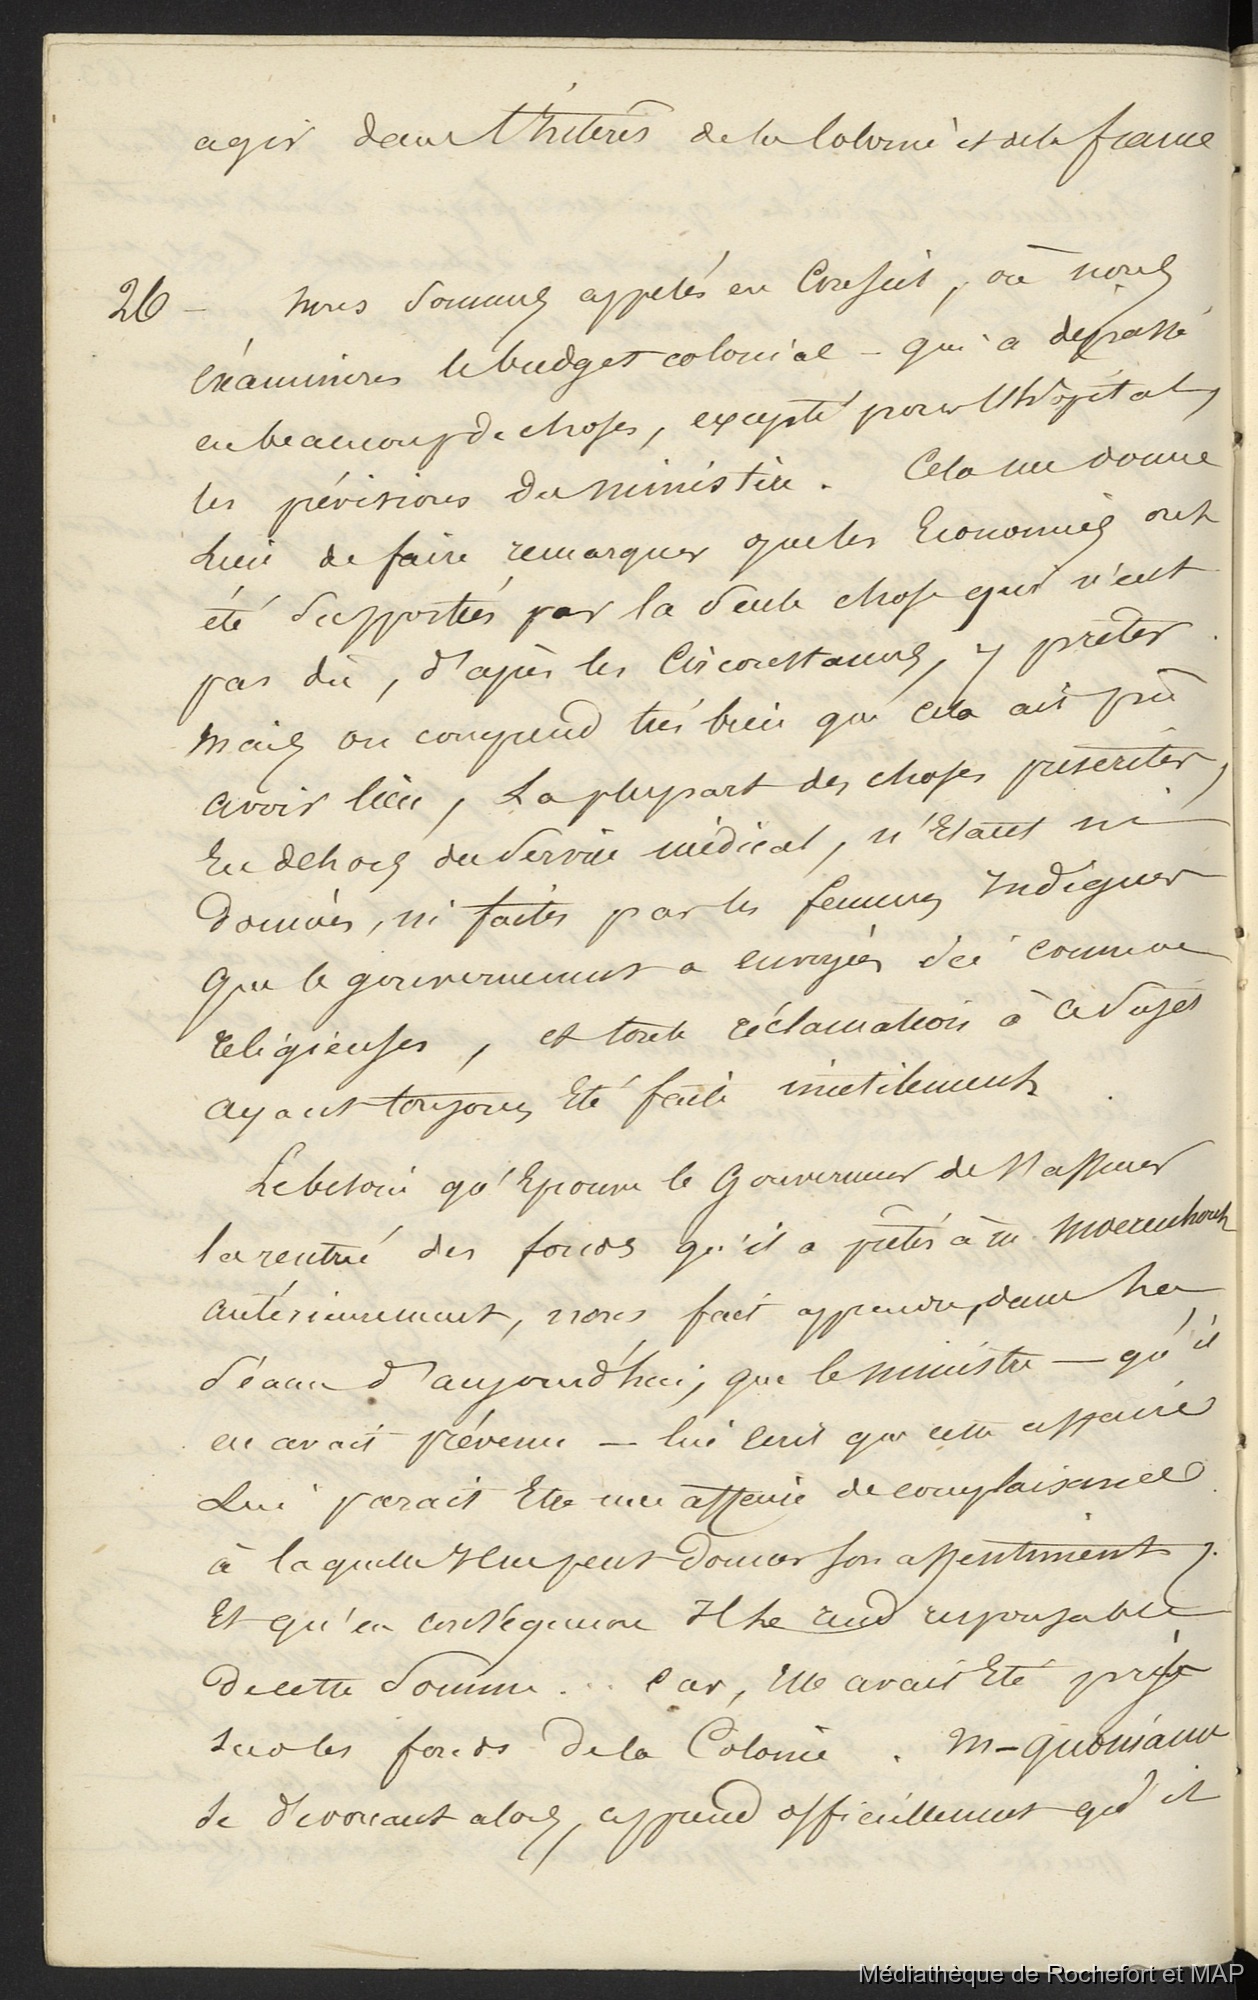 agir dans l'intérès de la Colonie et de la france
26 - nous sommes appelés en Conseil, où nous
éxaminons le budget colonial - qui a dépassé
en beaucoup de choses, excepté pour l'hôpital,
les prévisions du ministère. Cela me donne
Lieu de faire remarquer que les Economies ont
été supportées par la seule chose qui n'eut
pas dû, d'après les Circonstances, y prêter.
Mais on comprend très bien que cela ait pû
avoir lieu, La plupart des choses prescrites,
En dehors du Service médical, n'Etant ni
Données, ni faites par les femmes Indignes
que le gouvernement a envoyées ici comme
religieuses, et toute réclamation à ce Sujet
ayant toujours Eté faite inutilement.
Le besoin qu'Eprouve le Gouverneur de s'assurer
la rentrée des fonds qu'il a prêtés à m Moerenhout
antérieurement, nous fait apprendre, dans la
séance d'aujourd'hui, que le ministre - qu'il
en avait prévenu - lui écrit que cette affaire
Lui parait Etre une affaire de complaisance
à laquelle Il ne peut donner son assentiment,
Et qu'en conséquence Il le rend responsable
De cette Somme... Car, Elle avait Eté prise
sur les fonds de la Colonie. M-
se dévouant alors, apprend officiellement qu'il
Médiathèque de Rochefort et MAP